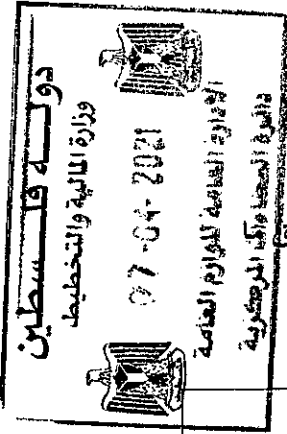 دولة فلسطين
وزارة المالية والتخطيط
07 -04- 2021
الإدارة العامة للوازم العامة
دائرة العطاءات المركزية